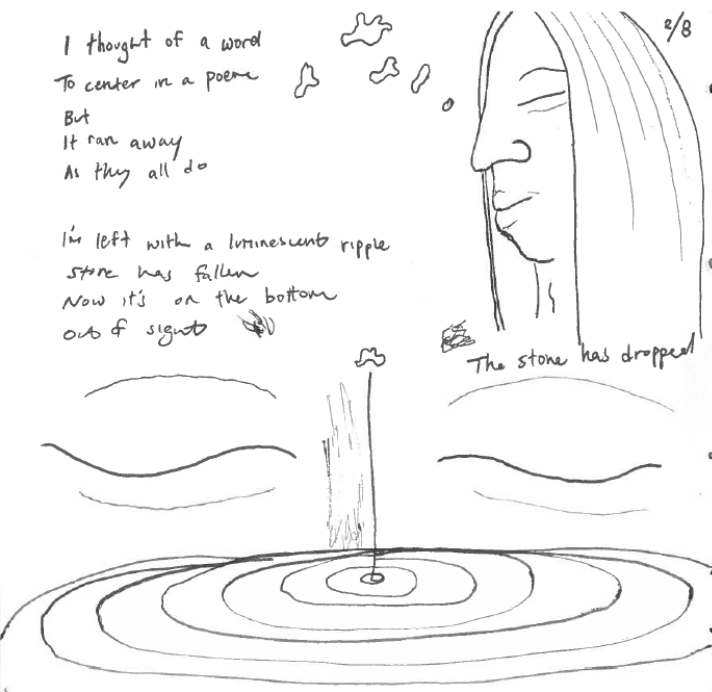 2/8
I thought of a word
To center in a poem
But
It ran away
As they all do
I'm left with a luminescent ripple
stone has fallen
Now it's on the bottom
out of sight
The stone has dropped